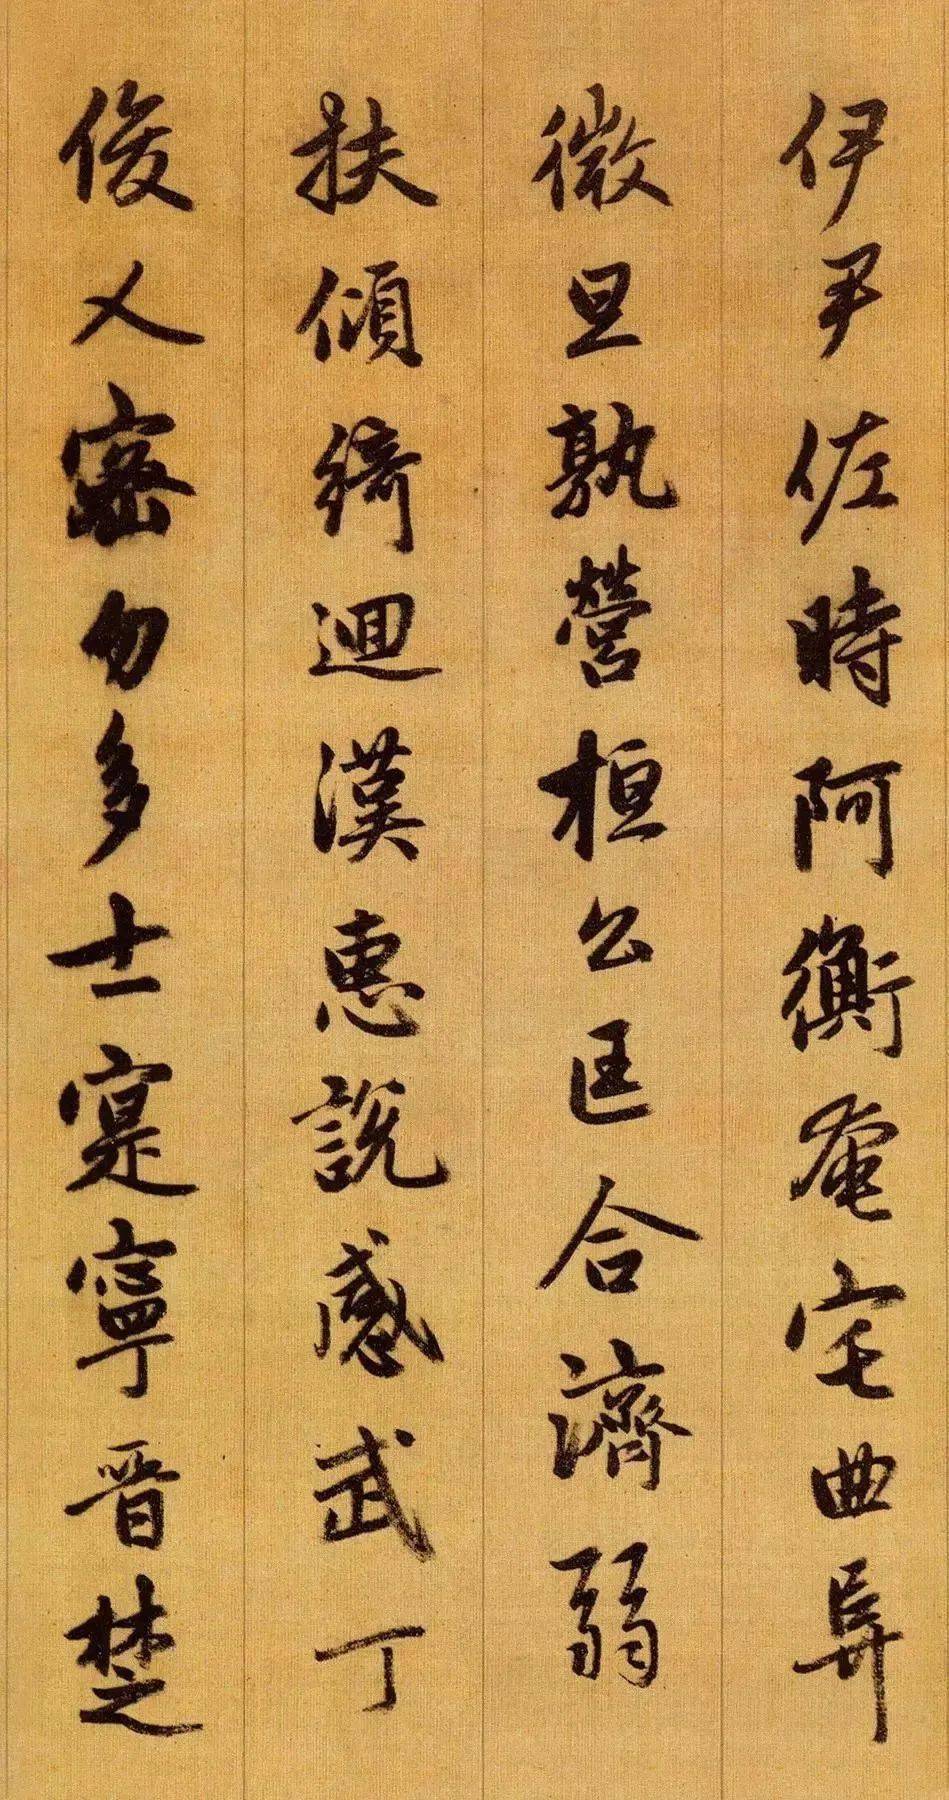 伊尹佐時阿衡奄宅曲阜
微旦孰營桓公匡合濟弱
扶傾綺迴漢惠說感武丁
俊乂密勿多士寔寧晉楚